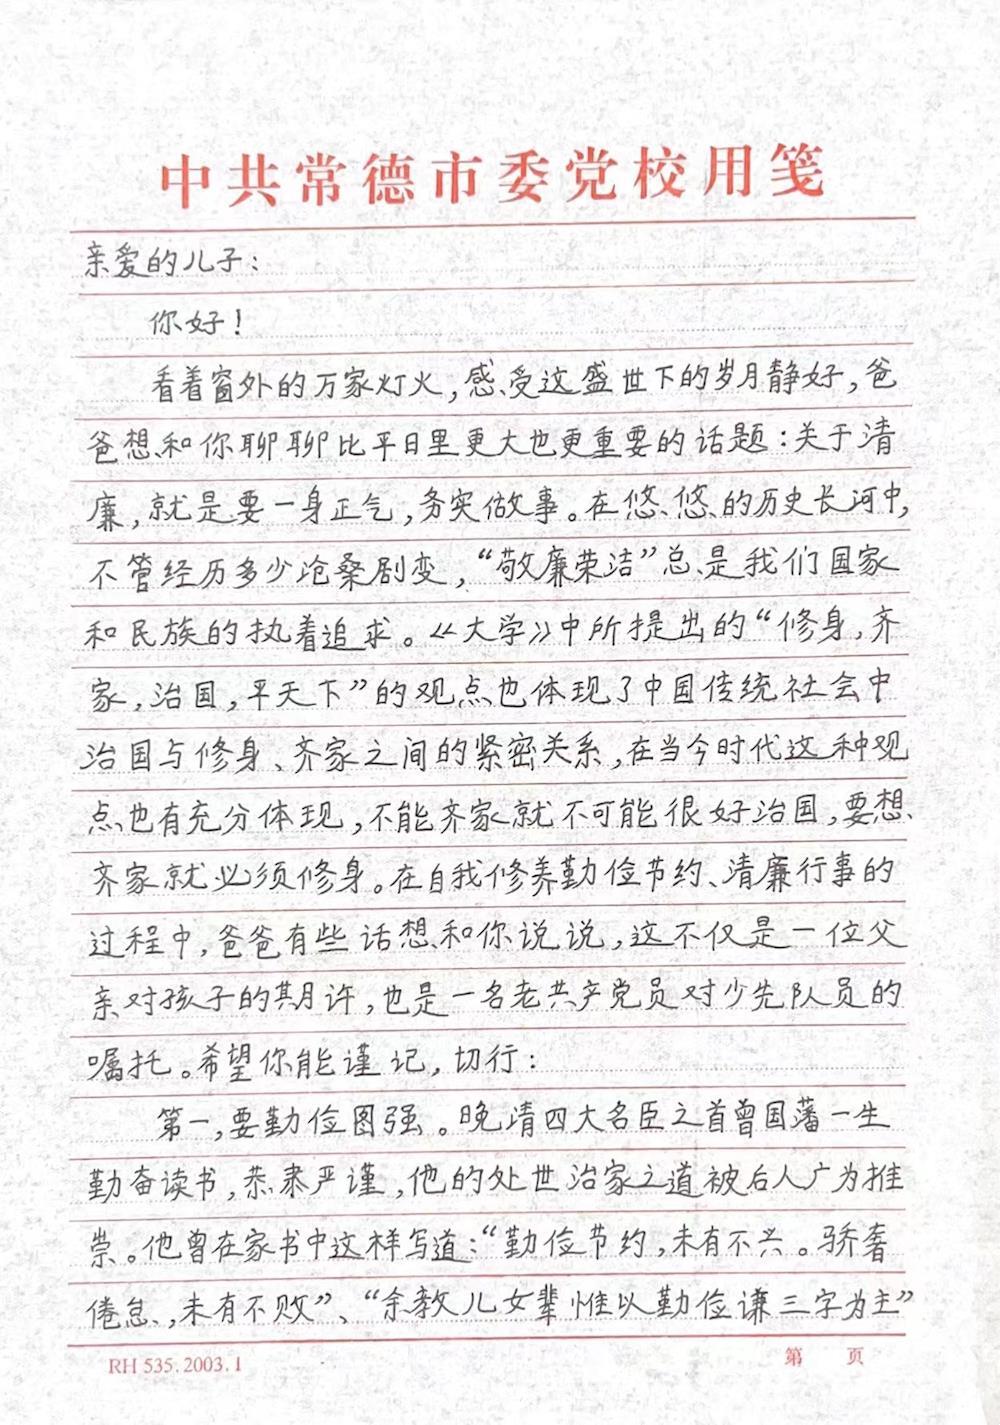 中共常德市委党校用笺
亲爱的儿子：
你好！
看着窗外的万家灯火，感受这盛世下的岁月静好，爸
爸想和你聊聊比平日里更大也更重要的话题：关于清
廉，就是要一身正气，务实做事。在悠悠的历史长河中，
不管经历多少沧桑剧变，“敬廉荣洁”总是我们国家
和民族的执着追求。《大学》中所提出的“修身，齐
家，治国，平天下”的观点也体现了中国传统社会中
治国与修身、齐家之间的紧密关系，在当今时代这种观
点也有充分体现，不能齐家就不可能很好治国，要想
齐家就必须修身。在自我修养勤俭节约、清廉行事的
过程中，爸爸有些话想和你说说，这不仅是一位父
亲对孩子的期许，也是一名老共产党员对少先队员的
嘱托。希望你能谨记，切行：
第一，要勤俭图强。晚清四大名臣之首曾国藩一生
勤奋读书，恭肃严谨，他的处世治家之道被后人广为推
崇。他曾在家书中这样写道：“勤俭节约，未有不兴。骄奢
倦怠，未有不败”、“余教儿女辈惟以勤俭谦三字为主”
RH 535.2003.1
第 页